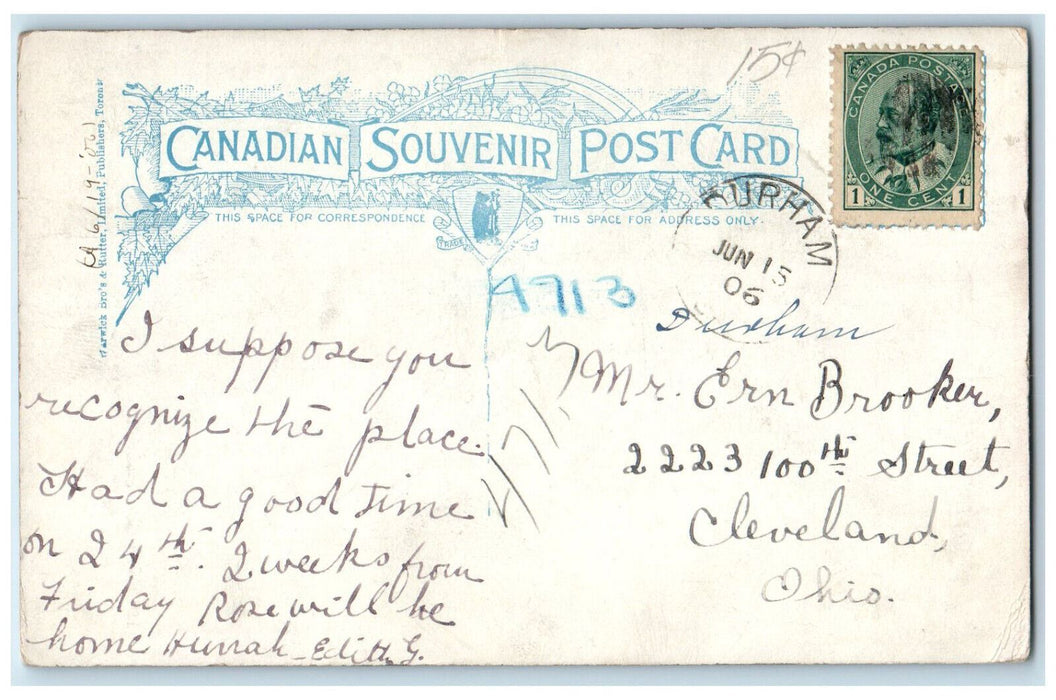 15¢
CANADA POSTAGE
1 ONE CENT 1
CANADIAN SOUVENIR POST CARD
THIS SPACE FOR CORRESPONDENCE
THIS SPACE FOR ADDRESS ONLY.
Warwick Bro's & Rutter, Limited, Publishers, Toronto
TRADE
DURHAM
JUN 15
06
A713
Durham
I suppose you
recognize the place.
Had a good time
on 24th. 2 weeks from
Friday Rose will be
home Hurrah - Edith G.
Mr. Ern Brooker,
2223 100th Street,
Cleveland,
Ohio.